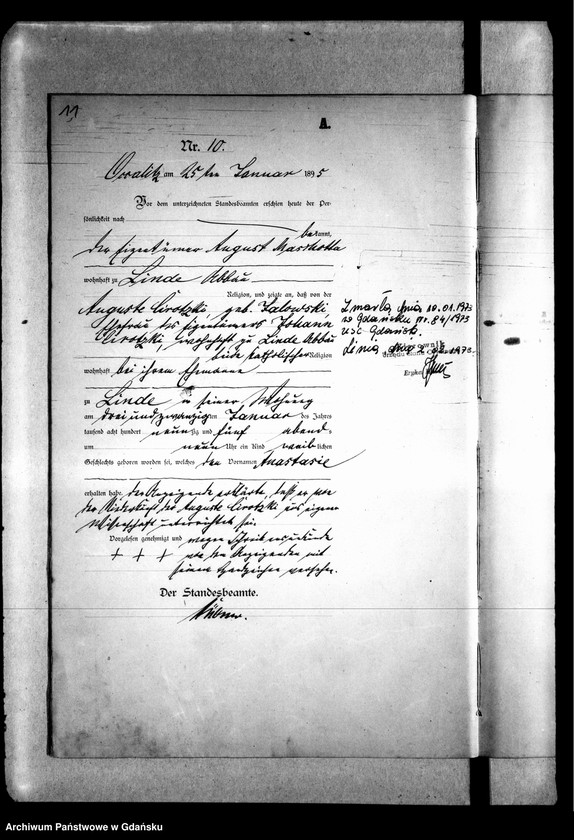 11
A.
Nr. 10.
am 25ten Januar 1895
Vor dem unterzeichneten Standesbeamten erschien heute der Per-
sönlichkeit nach
bekannt,
der Eigentümer August
wohnhaft zu Linde Abbau
Religion, und zeigte an, daß von der
Auguste Cirotzki, geb. Zalowski,
Ehefrau des Eigentümers Johann
Cirotzki, wohnhaft zu Linde Abbau
beide katholischer Religion
wohnhaft bei ihrem Ehemanne
zu Linde in seiner Wohnung
am drei und zwanzigsten Januar des Jahres
tausend acht hundert neunzig und fünf abends
um neun Uhr ein Kind weiblichen
Geschlechts geboren worden sei, welches den Vornamen Anastasie
erhalten habe. Der Anzeigende erklärte, daß er von
der Niederkunft der Auguste Cirotzki aus eigener
Wissenschaft unterrichtet sei.
Vorgelesen genehmigt und wegen Schreibensunkunde
+ + + von dem Anzeigenden mit
seinem Handzeichen versehen.
Der Standesbeamte.
Zmarła dnia 10.01.1973
w Gdańsku nr. 84/1973
USC Gdańsk
Linia
Archiwum Państwowe w Gdańsku